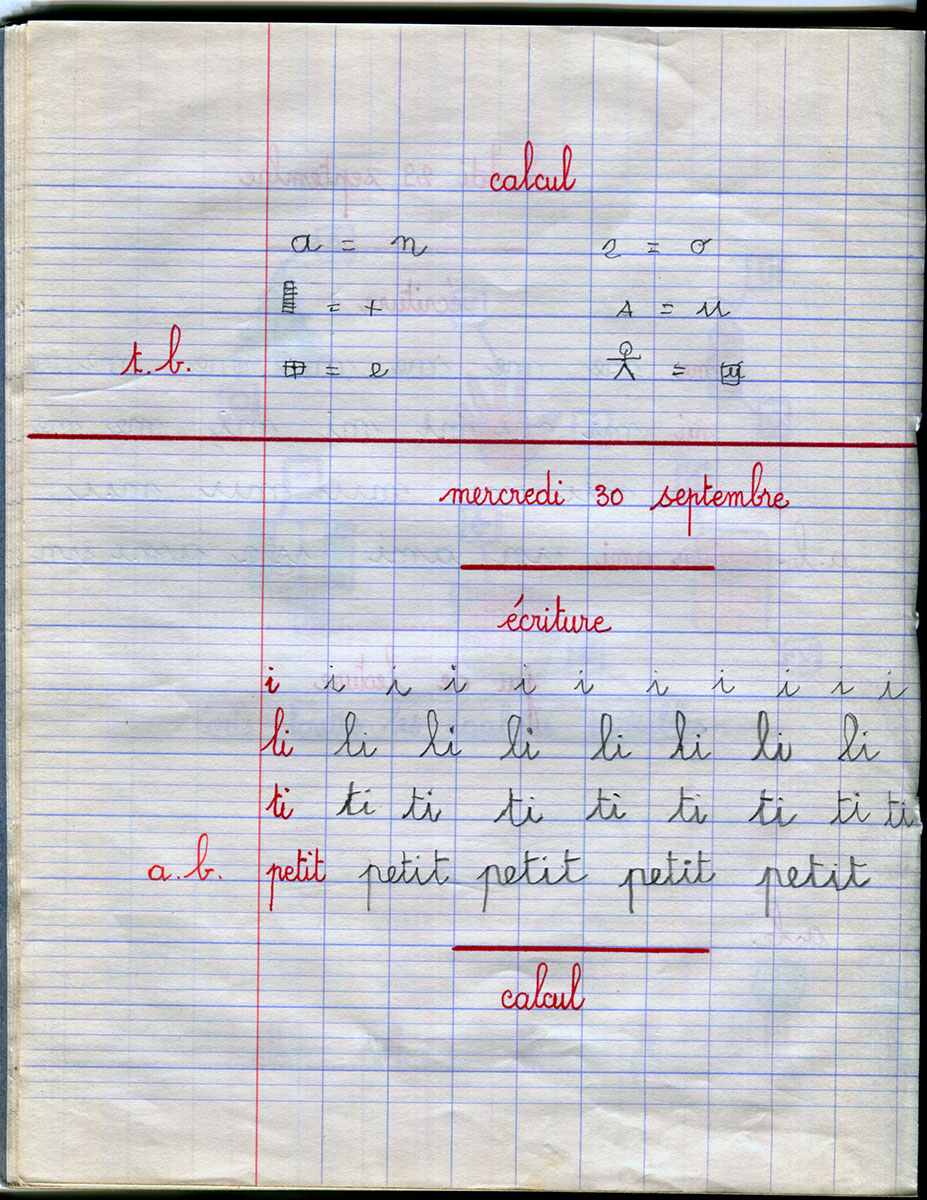 calcul
a = n    r = o
= +    s = u
t.b.    = e    =
mercredi 30 septembre
écriture
i i i i i i i i i i i
li li li li li li li li
ti ti ti ti ti ti ti ti ti
a.b. petit petit petit petit petit
calcul